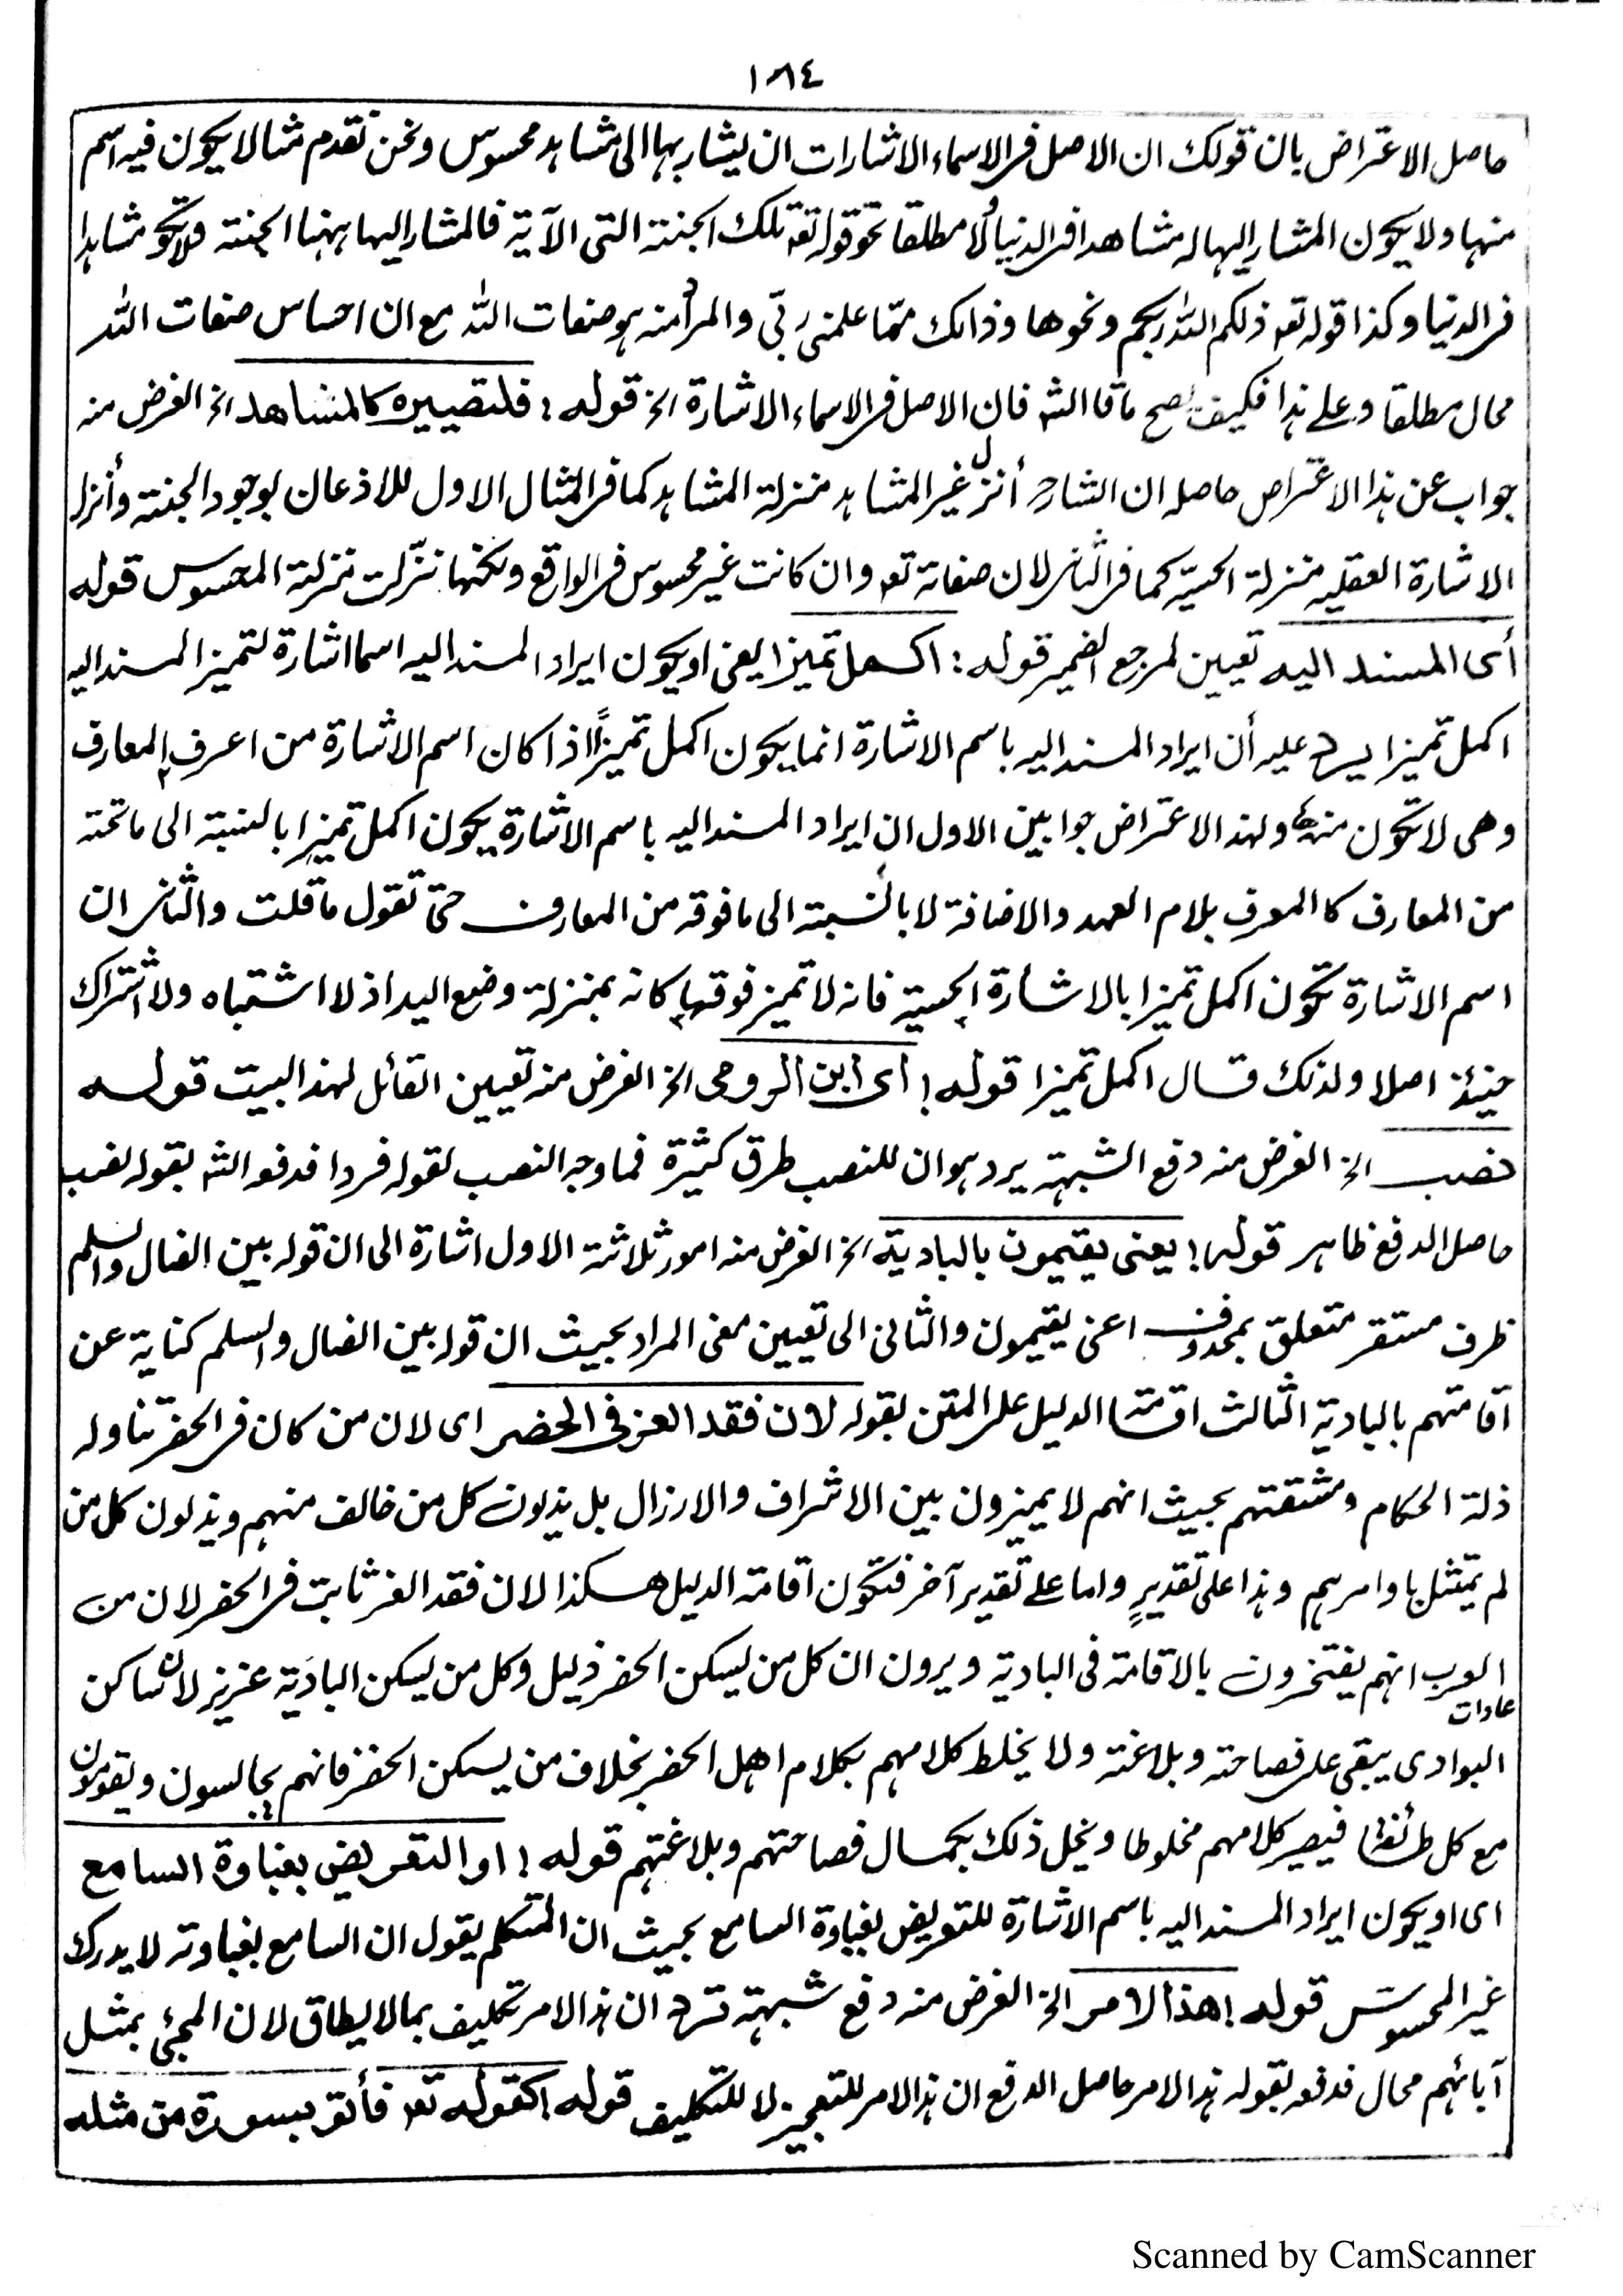 ١٨٤
حاصل الاعتراض بان قولك ان الاصل فى الاسماء الاشارات ان يشار بها الى مشاهد محسوس ونحن نقدم مثالا يكون فيه اسم
منها ولا يكون المشار اليها له مشاهدا فى الدنيا ولا مطلقا نحو قوله تعه تلك الجنته التى الآية فالمشار اليها ههنا الجنته ولا تكو مشاهدا
فى الدنيا وكذا قوله تعه ذلكم الله ربكم ونحوها وذالك مما علمنى ربى والمراد منه هو صفات الله مع ان احساس صفات الله
محال مطلقا وعلى هذا فكيف يصح ما قا الشه فان الاصل فى الاسماء الاشارة الخ قوله : فلتصييره كالمشاهد الخ الغرض منه
جواب عن هذا الاعتراض حاصله ان الشارح أنزل غير المشاهد منزلة المشاهد كما فى المثال الاول للاذعان بوجود الجنته وأنزل
الاشارة العقليه منزلة الحسية كما فى الثانى لان صفاته تعه وان كانت غير محسوس فى الواقع ولكنها نزّلت منزلة المحسوس قوله
أى المسند اليه تعيين لمرجع الضمير قوله : اكمل تميزا يعنى او يكون ايراد المسند اليه اسما اشارة لتميز المسند اليه
اكمل تميزا يرد عليه أن ايراد المسند اليه باسم الاشارة انما يكون اكمل تميزاً اذا كان اسم الاشارة من اعرف المعارف
وهى لا تكون منها ولهذ الاعتراض جوابين الاول ان ايراد المسند اليه باسم الاشارة يكون اكمل تميزا بالنسبته الى ما تحته
من المعارف كالمعرف بلام العهد والاضافة لا بالنسبته الى ما فوقه من المعارف حتى تقول ما قلت والثانى ان
اسم الاشارة تكون اكمل تميزا بالاشارة الحسية فانه لا تميز فوقها كانه بمنزلة وضع اليد اذ لا اشتباه ولا اشتراك
حينئذ اصلا ولذلك قال اكمل تميزا قوله ! اى ابن الرومى الخ الغرض منه تعيين القائل لهذ البيت قوله
نصب الخ الغرض منه دفع الشبهته يرد هو ان للنصب طرق كثيرة فما وجه النصب لقوله فردا فدفعه الشه بقوله نصب
حاصل الدفع ظاهر قوله ! يعنى يقيمون بالبادية الخ الغرض منه امور ثلاثته الاول اشارة الى ان قوله بين الضال والسلم
ظرف مستقر متعلق بمحذوف اعنى يقيمون والثانى الى تعيين معنى المراد بحيث ان قوله بين الضال والسلم كناية عن
اقامتهم بالبادية الثالث اقامته الدليل على المتن بقوله لان فقد العز فى الحضر اى لان من كان فى الحضر تناوله
ذلة الحكام ومشقتهم بحيث انهم لا يميزون بين الاشراف والارزال بل يذلون كل من خالف منهم ويذلون كل من
لم يمتثل باوامرهم وهذا على تقديرٍ واما على تقدير آخر فتكون اقامته الدليل هكذا لان فقد العز ثابت فى الحضر لان من
عادات
العرب انهم يفتخرون بالاقامة فى البادية ويرون ان كل من يسكن الحضر ذليل وكل من يسكن البادية عزيز لان ساكن
البوادى يبقى على فصاحته وبلاغته ولا يخلط كلامهم بكلام اهل الحضر بخلاف من يسكن الحضر فانهم يجالسون ويقومون
مع كل طائفة فيصير كلامهم مخلوطا ويخل ذلك بكمال فصاحتهم وبلاغتهم قوله ! او التعريض بغباوة السامع
اى او يكون ايراد المسند اليه باسم الاشارة للتعريض بغباوة السامع بحيث ان المتكلم يقول ان السامع بغباوته لا يدرك
غير المحسوس قوله ! هذا الامر الخ الغرض منه دفع شبهته ترد ان هذا الامر تكليف بما لا يطاق لان المجئ بمثل
آبائهم محال فدفعه بقوله هذا الامر حاصل الدفع ان هذا الامر للتعجيز لا للتكليف قوله ! كقوله تعه فأتو بسورة من مثله
Scanned by CamScanner